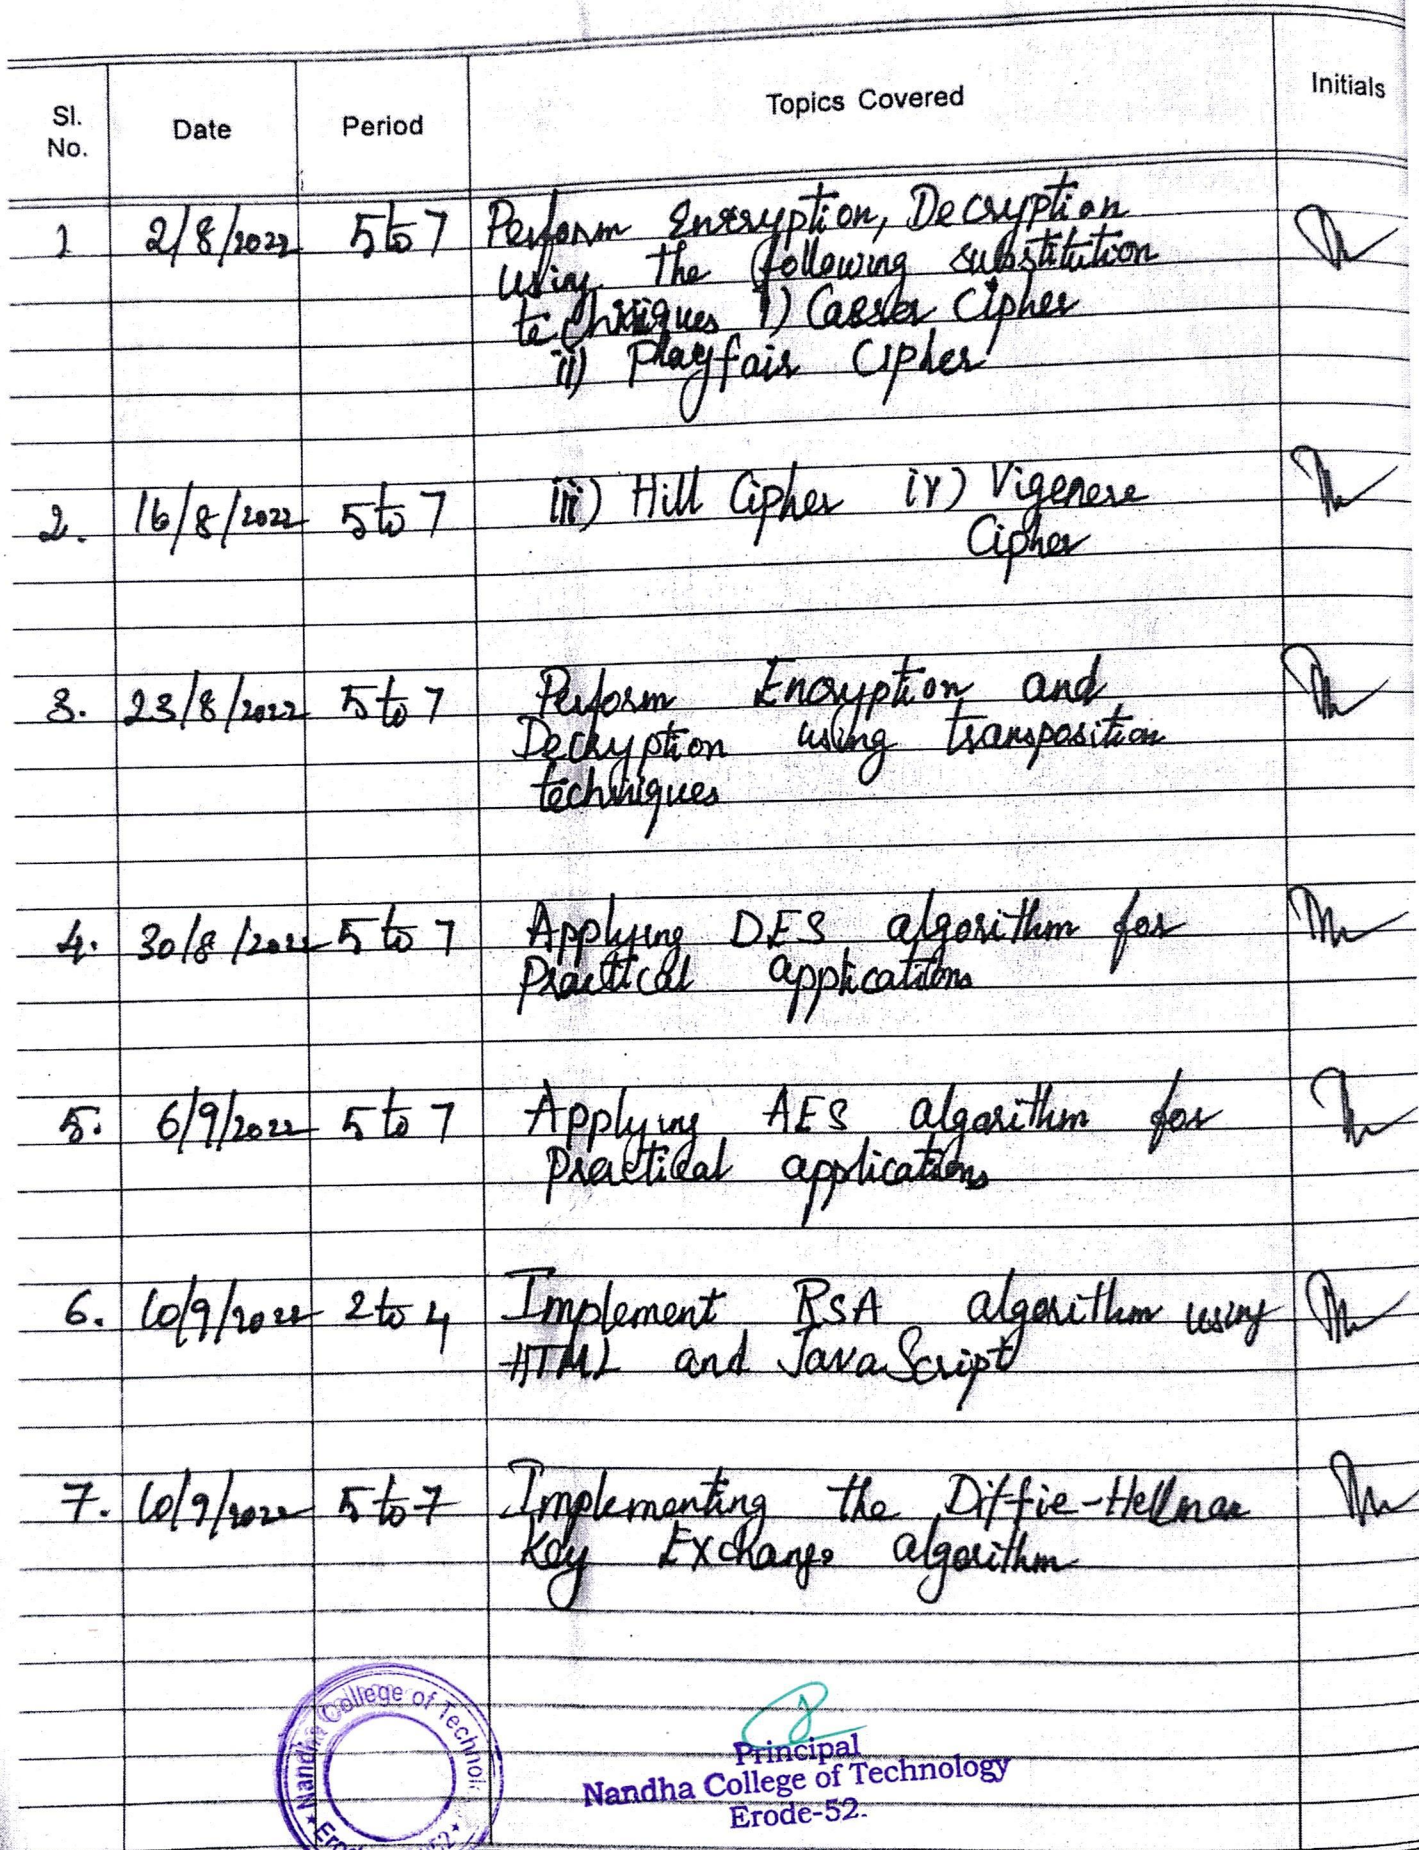 Sl. No. Date Period Topics Covered Initials
1 2/8/2022 5 to 7 Perform Encryption, Decryption
using the following substitution
techniques i) Caeser Cipher
ii) Playfair Cipher
2. 16/8/2022 5 to 7 iii) Hill Cipher iv) Vigenere
Cipher
3. 23/8/2022 5 to 7 Perform Encryption and
Decryption using transposition
techniques
4. 30/8/2022 5 to 7 Applying DES algorithm for
Practical applications
5. 6/9/2022 5 to 7 Applying AES algorithm for
practical applications
6. 10/9/2022 2 to 4 Implement RSA algorithm using
HTML and JavaScript
7. 10/9/2022 5 to 7 Implementing the Diffie-Hellman
Key Exchange algorithm
Nandha College of
Principal
Nandha College of Technology
Erode-52.